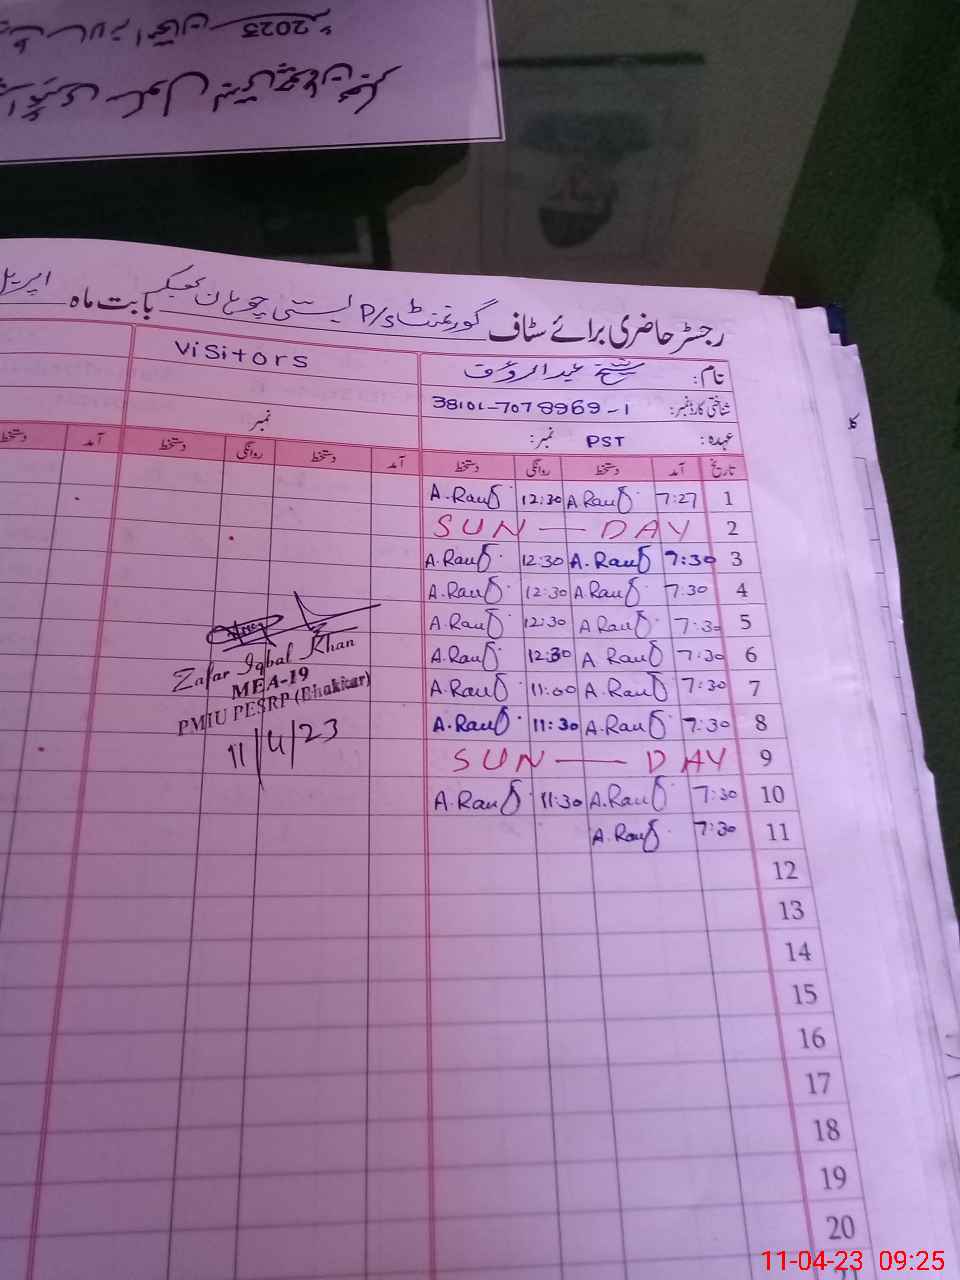 2023ء
رجسٹر حاضری برائے سٹاف گورنمنٹ P/S بستی چوہان بھکر بابت ماہ اپریل
Visitors
نام: شیخ عبدالرؤف
شناختی کارڈ نمبر: 38101-7078969-1
عہدہ: PST نمبر:
نمبر
تاریخ آمد دستخط روانگی دستخط آمد دستخط روانگی دستخط آمد دستخط
1 7:27 A.Rauf 12:30 A.Rauf
2 SUN — DAY
3 7:30 A.Rauf 12:30 A.Rauf
4 7:30 A.Rauf 12:30 A.Rauf
5 7:30 A Rauf 12:30 A.Rauf
6 7:30 A Rauf 12:30 A.Rauf
7 7:30 A.Rauf 11:00 A.Rauf
8 7:30 A.Rauf 11:30 A.Rauf
9 SUN — DAY
10 7:30 A.Rauf 11:30 A.Rauf
11 7:30 A.Rauf
12
13
14
15
16
17
18
19
20
Zafar Iqbal Khan
MEA-19
PMIU PESRP (Bhakkar)
11/4/23
11-04-23 09:25